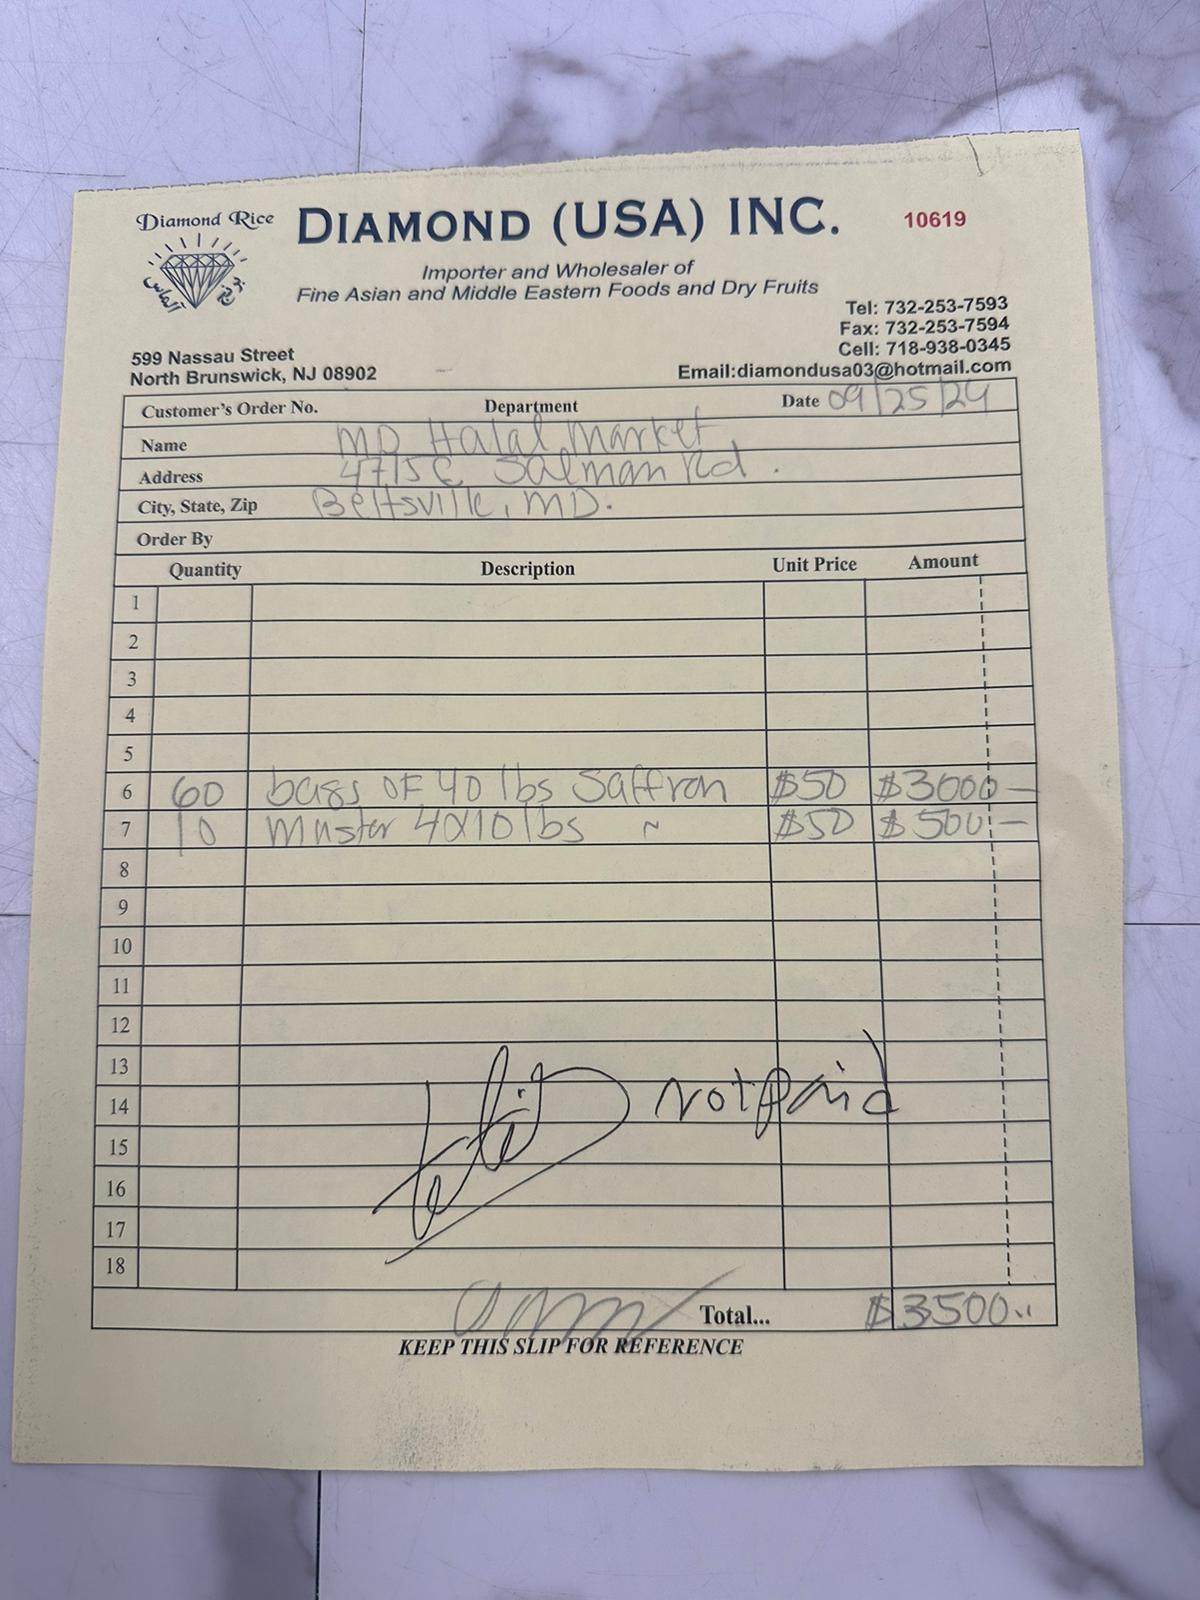 Diamond Rice
DIAMOND (USA) INC.
10619
الماس
Importer and Wholesaler of
Fine Asian and Middle Eastern Foods and Dry Fruits
Tel: 732-253-7593
Fax: 732-253-7594
Cell: 718-938-0345
599 Nassau Street
North Brunswick, NJ 08902
Email:diamondusa03@hotmail.com
Customer's Order No. Department Date 09/25/24
Name MD Halal Market
Address 4715C Salman Rd.
City, State, Zip Beltsville, MD.
Order By
Quantity Description Unit Price Amount
1
2
3
4
5
6 60 bags OF 40 lbs Saffron $50 $3000 —
7 10 Master 4x10 lbs ~ $50 $500 —
8
9
10
11
12
13
14 Not paid
15
16
17
18
Total... $3500..
KEEP THIS SLIP FOR REFERENCE